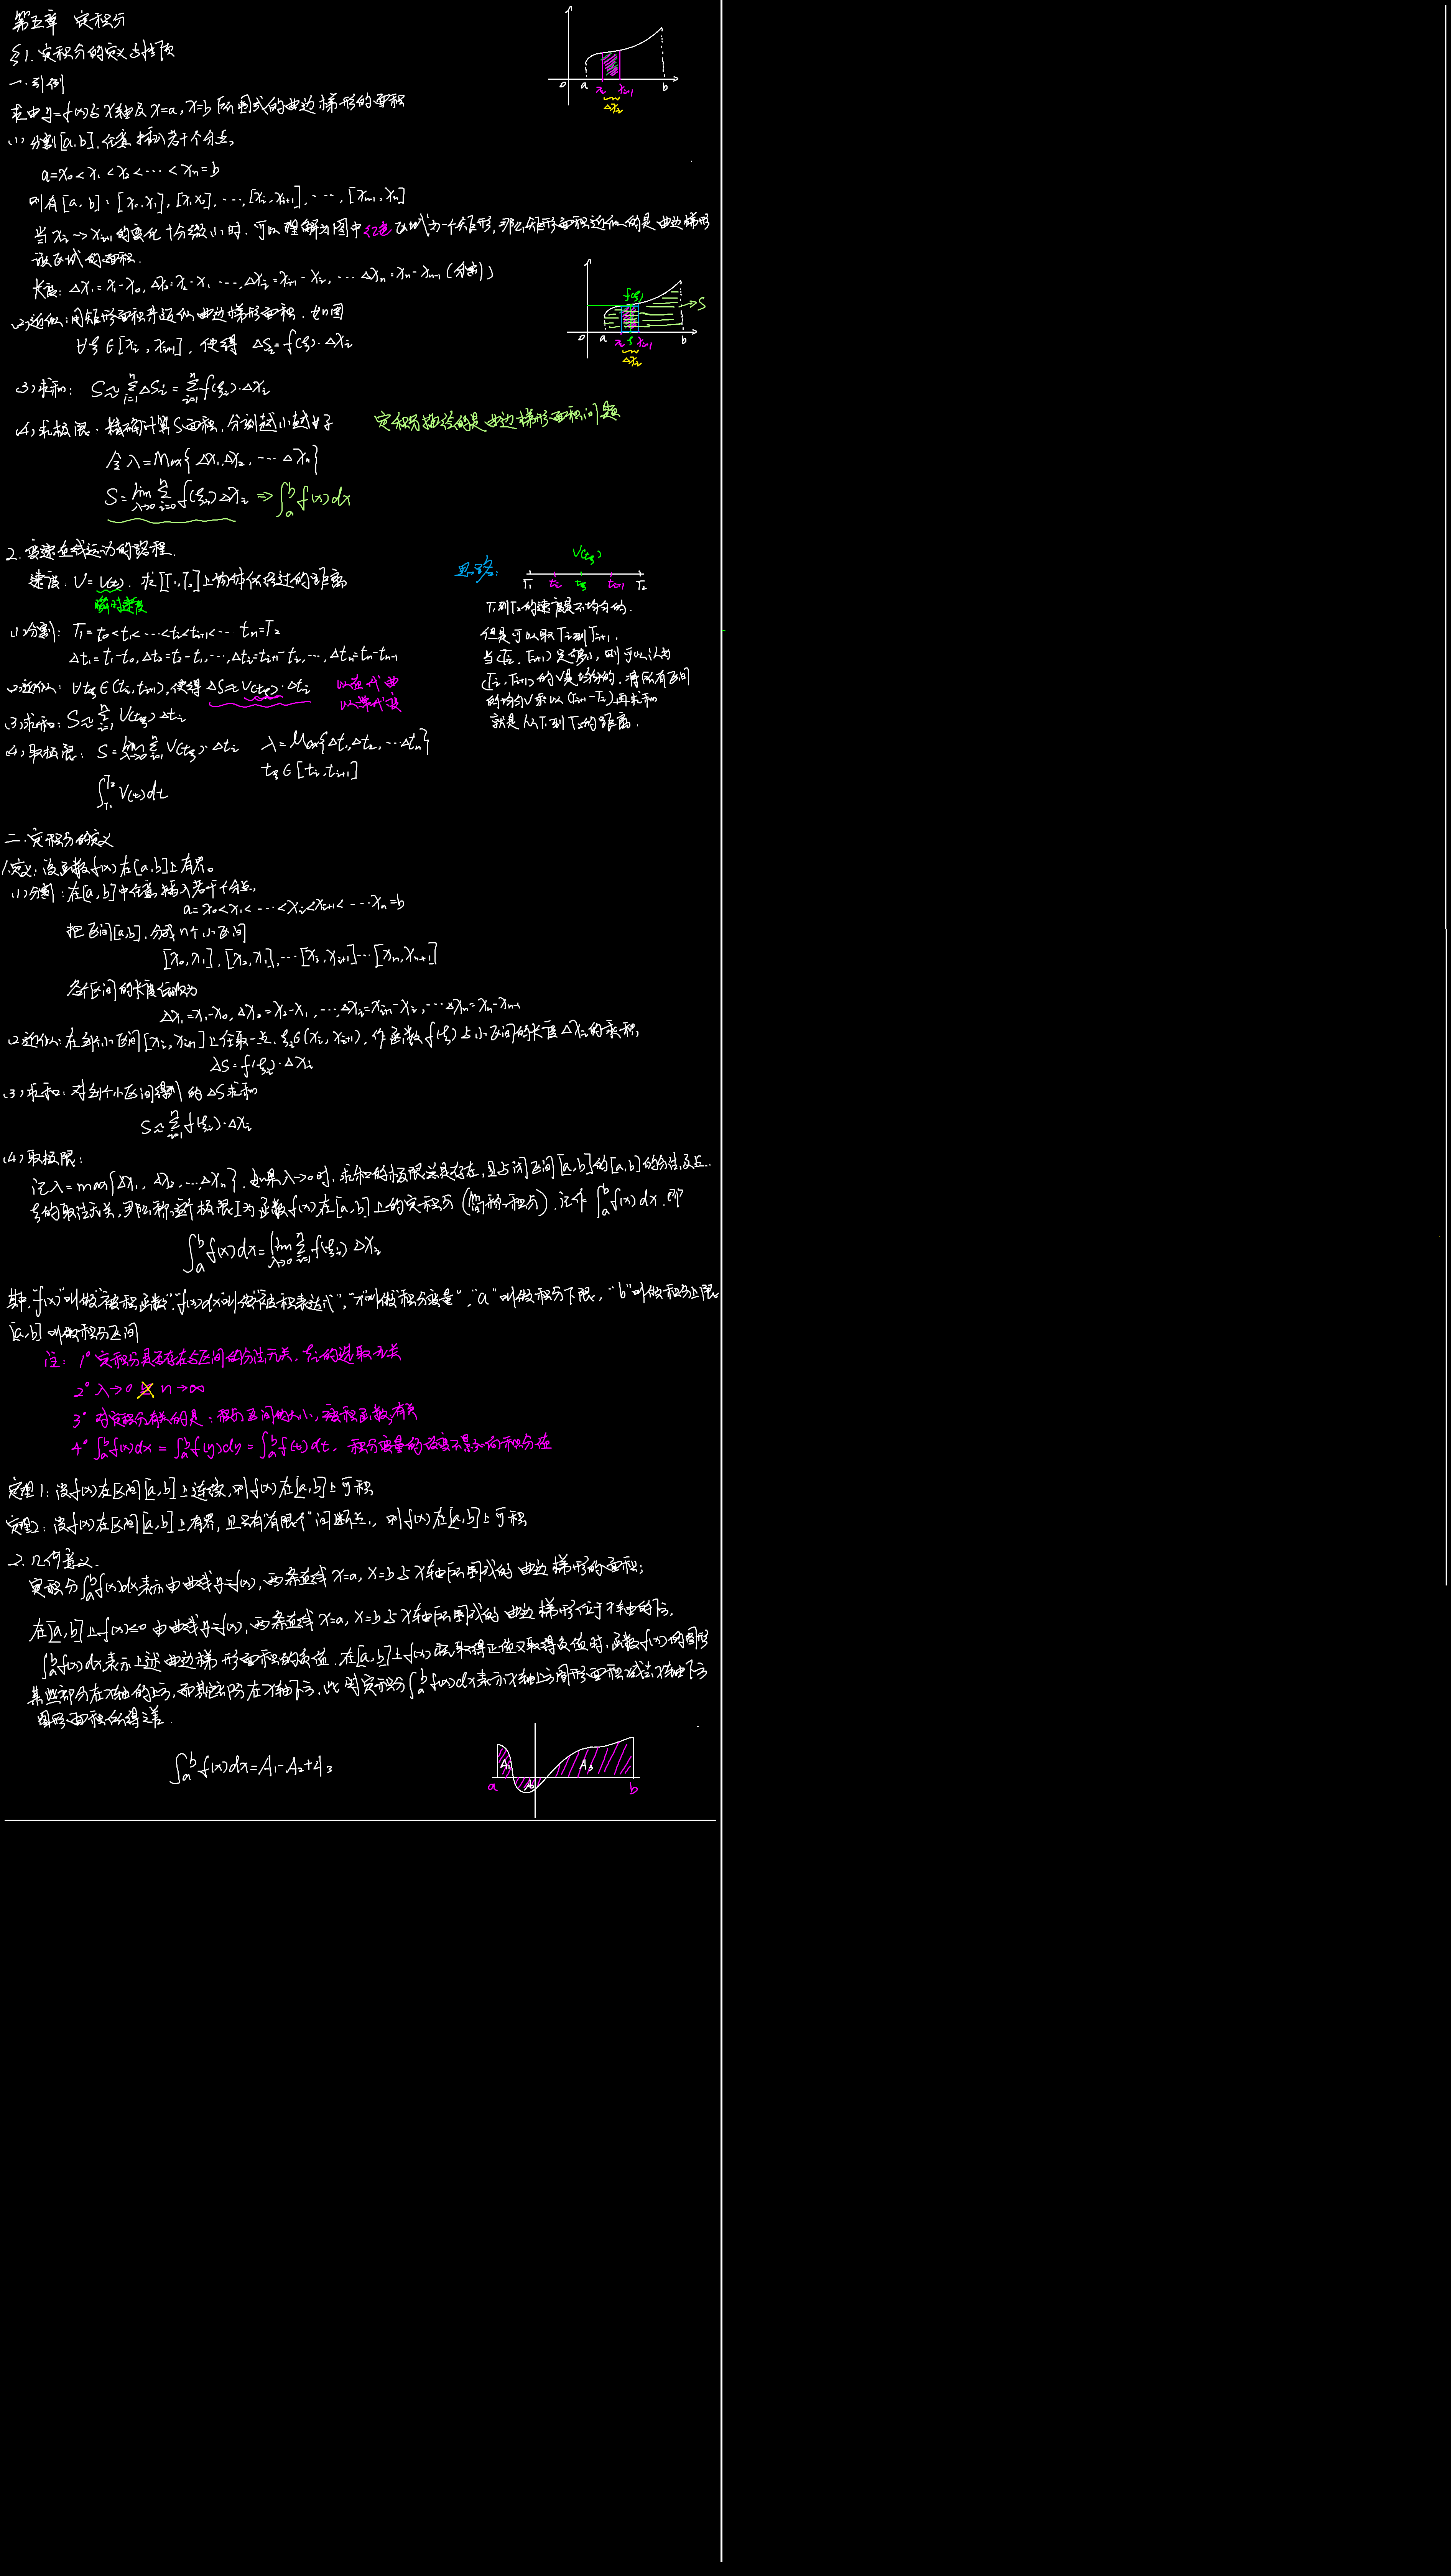 第五章 定积分
§1. 定积分的定义与性质
一. 引例
求由y=f(x)与x轴及x=a, x=b所围成的曲边梯形的面积
(1) 分割[a,b], 任意插入若干个分点,
a=x₀<x₁<x₂<⋯<xₙ=b
则有[a,b]: [x₀,x₁], [x₁,x₂], ⋯, [xᵢ,xᵢ₊₁], ⋯, [xₙ₋₁,xₙ]
当xᵢ→xᵢ₊₁的变化十分微小时, 可以理解为图中红色区域为一个矩形, 那么矩形面积近似的是曲边梯形
该区域的面积.
长度: Δx₁=x₁-x₀, Δx₂=x₂-x₁, ⋯, Δxᵢ=xᵢ₊₁-xᵢ, ⋯ Δxₙ=xₙ-xₙ₋₁ (分割)
(2) 近似: 用矩形面积来近似曲边梯形面积. 如图
∀ξ∈[xᵢ, xᵢ₊₁], 使得 ΔSᵢ=f(ξ)·Δxᵢ
(3) 求和: S≈∑ⁿᵢ₌₁ΔSᵢ=∑ⁿᵢ₌₁f(ξᵢ)·Δxᵢ
(4) 求极限: 精确计算S面积, 分割越小越好
定积分描绘的是曲边梯形面积问题
令λ=Max{Δx₁,Δx₂, ⋯ Δxₙ}
S=lim_{λ→0}∑ⁿᵢ₌₀f(ξᵢ)Δxᵢ ⇒ ∫ₐᵇf(x)dx
O a xᵢ xᵢ₊₁ b
Δxᵢ
f(ξ)
→S
O a xᵢ ξ xᵢ₊₁ b
Δxᵢ
2. 变速直线运动的路程.
速度. V=V(t). 求[T₁,T₂]上物体所经过的距离
瞬时速度
(1) 分割: T₁=t₀<t₁<⋯<tᵢ<tᵢ₊₁<⋯ tₙ=T₂
Δt₁=t₁-t₀, Δt₂=t₂-t₁, ⋯, Δtᵢ=tᵢ₊₁-tᵢ, ⋯, Δtₙ=tₙ-tₙ₋₁
(2) 近似: ∀tξ∈(tᵢ,tᵢ₊₁), 使得 ΔS≈V(tξ)·Δtᵢ
以直代曲
以常代变
(3) 求和: S≈∑ⁿᵢ₌₁V(tξ)·Δtᵢ
(4) 取极限: S=lim_{λ→0}∑ⁿᵢ₌₁V(tξ)·Δtᵢ λ=Max{Δt₁,Δt₂, ⋯Δtₙ}
tξ∈[tᵢ,tᵢ₊₁]
∫_{T₁}^{T₂}V(t)dt
思路:
V(tξ)
T₁ tᵢ tξ tᵢ₊₁ T₂
T₁到T₂的速度是不均匀的.
但是可以取Tᵢ到Tᵢ₊₁.
当(Tᵢ, Tᵢ₊₁)足够小, 则可以认为
(Tᵢ, Tᵢ₊₁)的V是均匀的. 将所有区间
的均匀V乘以(Tᵢ₊₁-Tᵢ)再求和
就是从T₁到T₂的距离.
二. 定积分的定义
1.定义: 设函数f(x)在[a,b]上有界。
(1) 分割: 在[a,b]中任意插入若干个分点,
a=x₀<x₁<⋯<xᵢ<xᵢ₊₁<⋯xₙ=b
把区间[a,b], 分成n个小区间
[x₀,x₁], [x₂,x₁], ⋯[xᵢ,xᵢ₊₁]⋯[xₙ,xₙ₊₁]
各个区间的长度依次为
Δx₁=x₁-x₀, Δx₂=x₂-x₁, ⋯, Δxᵢ=xᵢ₊₁-xᵢ, ⋯Δxₙ=xₙ-xₙ₋₁
(2) 近似: 在每个小区间[xᵢ,xᵢ₊₁]上任取一点, ξᵢ∈(xᵢ,xᵢ₊₁), 作函数f(ξ)与小区间的长度Δxᵢ的乘积,
ΔS=f(ξᵢ)·Δxᵢ
(3) 求和: 对每个小区间得到的ΔS求和
S≈∑ⁿᵢ₌₁f(ξᵢ)·Δxᵢ
(4) 取极限:
记λ=max{Δx₁, Δx₂, ⋯, Δxₙ}, 如果λ→0时, 求和的极限总是存在, 且与闭区间[a,b]的[a,b]的分法及点...
ξ的取法无关, 那么称这个极限I为函数f(x)在[a,b]上的定积分(简称积分). 记作∫ₐᵇf(x)dx. 即
∫ₐᵇf(x)dx=lim_{λ→0}∑ⁿᵢ₌₁f(ξᵢ)Δxᵢ
其中, "f(x)"叫做"被积函数". "f(x)dx"叫做"被积表达式", "x"叫做"积分变量". "a"叫做积分下限, "b"叫做积分上限
[a,b]叫做积分区间
注: 1° 定积分是否存在与区间的分法无关, ξᵢ的选取无关
2° λ→0 n→∞
3° 对定积分有关的是: 积分区间的大小, 被积函数有关
4° ∫ₐᵇf(x)dx=∫ₐᵇf(y)dy=∫ₐᵇf(t)dt. 积分变量的改变不影响积分值
定理1: 设f(x)在区间[a,b]上连续, 则f(x)在[a,b]上可积
定理2: 设f(x)在区间[a,b]上有界, 且只有"有限个"间断点, 则f(x)在[a,b]上可积
2. 几何意义.
定积分∫ₐᵇf(x)dx表示由曲线y=f(x), 两条直线x=a, x=b与x轴所围成的曲边梯形的面积;
在[a,b]上f(x)≤0 由曲线y=f(x), 两条直线x=a, x=b与x轴所围成的曲边梯形位于x轴的下方.
∫ₐᵇf(x)dx表示上述曲边梯形面积的负值. 在[a,b]上f(x)既取得正值又取得负值时, 函数f(x)的图形
某些部分在x轴的上方, 而其它部分在x轴下方, 此时定积分∫ₐᵇf(x)dx表示x轴上方图形面积减去x轴下方
图形面积所得之差.
∫ₐᵇf(x)dx=A₁-A₂+A₃
A₁ A₂ A₃
a b